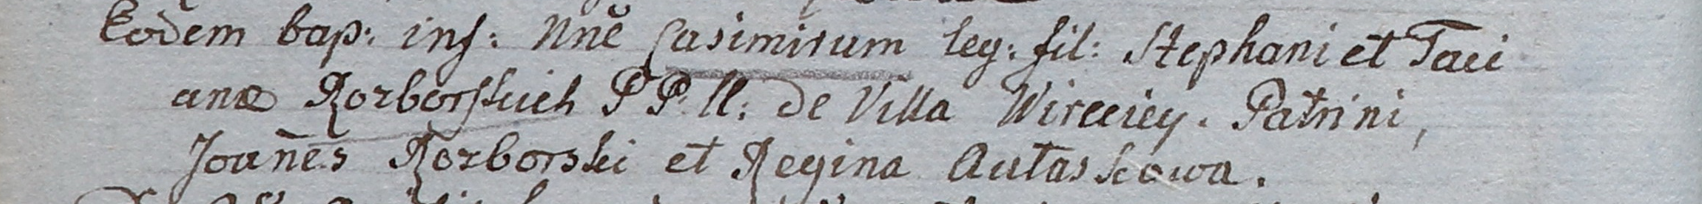 Eodem bap: inf: Nnē Casimirum leg: fil: Stephani et Taci
anæ Rozborskich PP. ll: de Villa Wircciey. Patrini,
Joan̄es Rozborski et Regina Autaskowa.